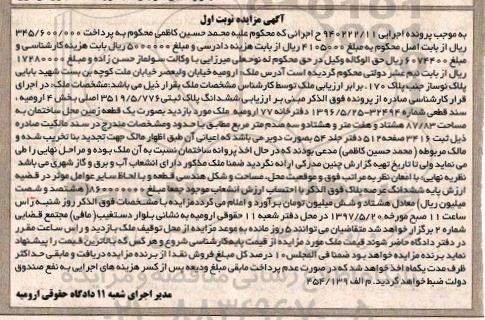 آگهی مزایده نوبت اول
به موجب پرونده اجرایی ۹۴۰۲۲۲/۱۱ ح اجرائی که محکوم علیه محمد حسین کاظمی محکوم به پرداخت ۳۴۵/۶۰۰/۰۰۰
ریال از بابت اصل محکوم به مبلغ ۴۱۰۵۰۰۰ ریال از بابت هزینه دادرسی و مبلغ ۵۰۰۰۰۰۰ ریال بابت هزینه کارشناسی و
مبلغ ۶۰۷۴۴۰۰ ریال حق الوکاله وکیل در حق محکوم له نوحعلی میرزایی با وکالت سولماز حسن زاده و مبلغ ۱۷۲۸۰۰۰۰
ریال از بابت نیم عشر دولتی محکوم گردیده است آدرس ملک: ارومیه خیابان ولیعصر خیابان ملت کوچه بن بست شهید بابایی
پلاک نوساز جنب پلاک ۱۷۰. برابر ارزیابی ملک توسط کارشناس مشخصات ملک بقرار ذیل می باشد: مشخصات ملک: در اجرای
قرار کارشناسی صادره از پرونده فوق الذکر مبنی بر ارزیابی ششدانگ پلاک ثبتی ۳۵۱۹/۵/۷۷۶ اصلی بخش ۴ ارومیه،
سند قطعی شماره ۳۲۴۹۴-۱۳۹۶/۵/۲۵ دفترخانه ۷۷ ارومیه, ملک مورد بازدید بصورت یک قطعه زمین محل ساختمان به
مساحت ۸۷/۸۳ هشتاد و هفت متر و هشتاد و سه صدم متر مربع مطابق با حدود و مشخصات مندرج در سند مالکیت صادره
ذیل ثبت ۳۴۱۶ صفحه ۵۱۲ دفتر جلد ۵۴ بصورت دویر می باشد که اعیانی آن طبق اظهار مالک جهت تجدید بنا تخریب شده و
مالک مربوطه (محمد حسین کاظمی) مدعی بودند که در حال اخذ پروانه ساختمان نسبت به آن ملک بوده و مراحل نهایی را طی
می نماید ولی تا تاریخ تهیه گزارش چنین مدرکی ارائه نگردید ضمنا ملک مذکور دارای انشعاب آب و برق و گاز شهری می باشد
نظریه نهایی، با امعان نظر به مراتب فوق و موقعیت محل، مساحت و شکل هندسی قطعه و با لحاظ سایر عوامل موثر در قضیه
ارزش پایه ششدانگ عرصه پلاک فوق الذکر با احتساب ارزش انشعاب موجود جمعا مبلغ ۸۶۰۰۰۰۰۰۰ (هشتصد و شصت
میلیون ریال) معادل هشتاد و شش میلیون تومان برآورد و اعلام می گردد مزایده با مشخصات فوق الذکر روز شنبه رأس
ساعت ۱۱ صبح مورخه ۱۳۹۷/۵/۲۰ در محل دفتر شعبه ۱۱ حقوقی ارومیه به نشانی بلوار دستغیب (مافی) مجتمع قضایی
شماره ۲ برگزار خواهد شد متقاضیان می توانند ۵ روز مانده به موعد مزایده از محل توقیف ملک بازدید و راس ساعت مقرر
در دفتر دادگاه حاضر شوند قیمت ملک مورد مزایده از قیمت پایه کارشناسی شروع و هر کس که بالاترین قیمت را پیشنهاد
نماید برنده مزایده خواهد بود ضمنا فی المجلس ۱۰ درصد کل مبلغ فروش نقدا از برنده مزایده دریافت و مابقی حداکثر
ظرف مدت یکماه اخذ خواهد شد که در صورت عدم پرداخت مابقی مبلغ ودیعه پس از کسر هزینه های اجرایی به نفع صندوق
دولت ضبط خواهد گردید. م الف ۴۵۴/۱۳۹
مدیر اجرای شعبه ۱۱ دادگاه حقوقی ارومیه